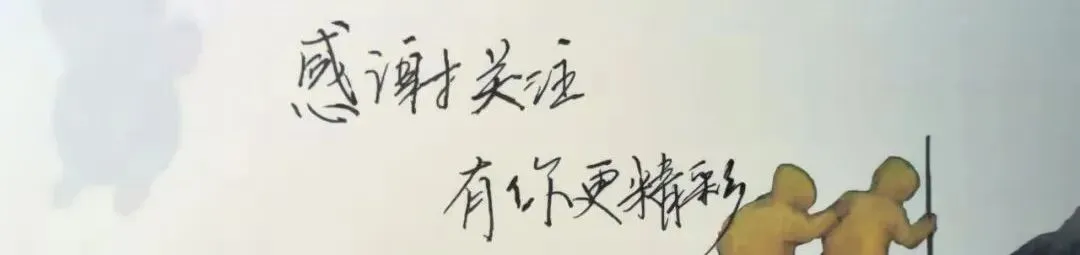 感谢关注
有你更精彩